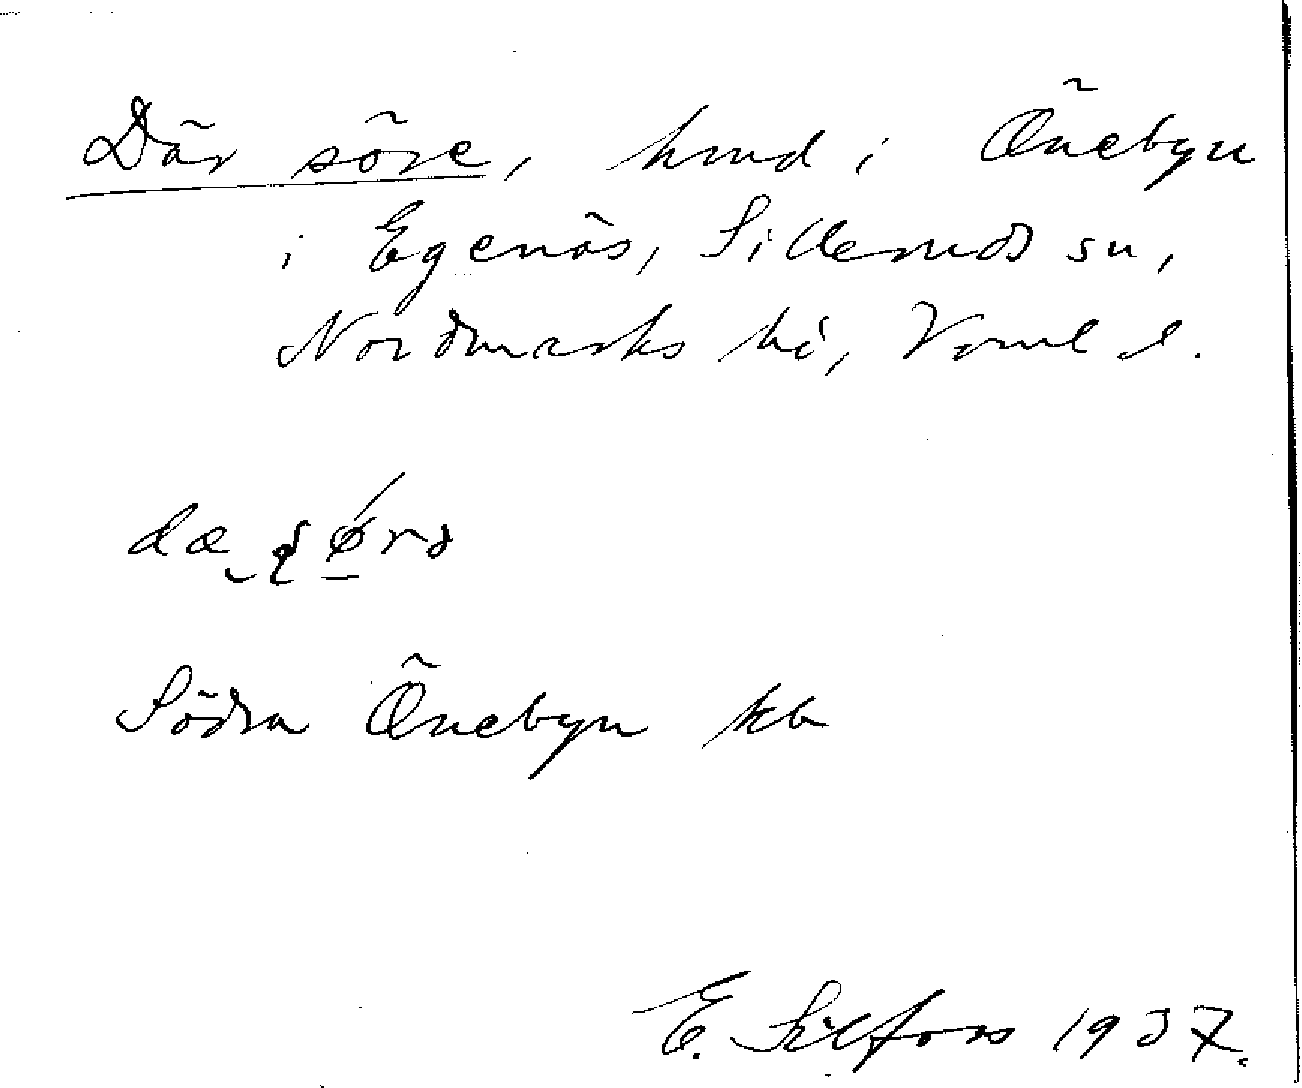 Där söre, hmd i Önebyn
i Egenäs, Silleruds sn,
Nordmarks hd, Värml l.
Södra Önebyn kb
E. Kilfors 1937.